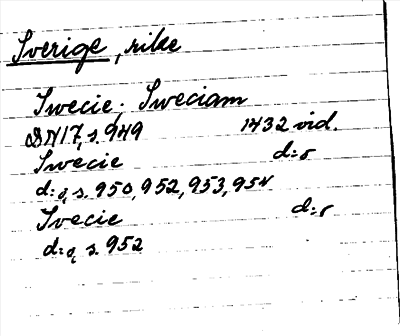 Sverige, rike
Swecie; Sweciam
DN17, s. 949 1432 vid.
Swecie d:o
d:o, s. 950, 952, 953, 954
Svecie d:o
d:o, s. 952